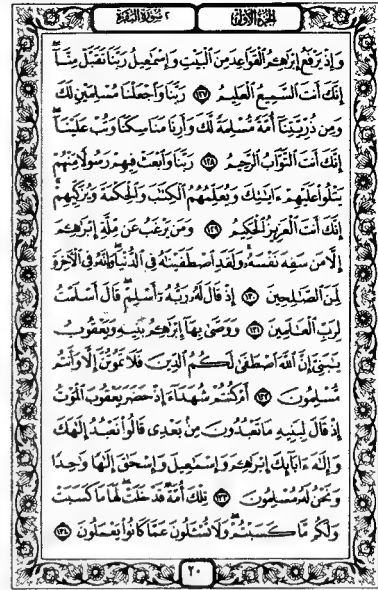 الجزء الأول ٢ سورة البقرة
وَإِذْ يَرْفَعُ إِبْرَٰهِـۧمُ ٱلْقَوَاعِدَ مِنَ ٱلْبَيْتِ وَإِسْمَـٰعِيلُ رَبَّنَا تَقَبَّلْ مِنَّآ ۖ
إِنَّكَ أَنتَ ٱلسَّمِيعُ ٱلْعَلِيمُ ١٢٧ رَبَّنَا وَٱجْعَلْنَا مُسْلِمَيْنِ لَكَ
وَمِن ذُرِّيَّتِنَآ أُمَّةً مُّسْلِمَةً لَّكَ وَأَرِنَا مَنَاسِكَنَا وَتُبْ عَلَيْنَآ ۖ
إِنَّكَ أَنتَ ٱلتَّوَّابُ ٱلرَّحِيمُ ١٢٨ رَبَّنَا وَٱبْعَثْ فِيهِمْ رَسُولًا مِّنْهُمْ
يَتْلُوا۟ عَلَيْهِمْ ءَايَـٰتِكَ وَيُعَلِّمُهُمُ ٱلْكِتَـٰبَ وَٱلْحِكْمَةَ وَيُزَكِّيهِمْ ۚ
إِنَّكَ أَنتَ ٱلْعَزِيزُ ٱلْحَكِيمُ ١٢٩ وَمَن يَرْغَبُ عَن مِّلَّةِ إِبْرَٰهِـۧمَ
إِلَّا مَن سَفِهَ نَفْسَهُۥ ۚ وَلَقَدِ ٱصْطَفَيْنَـٰهُ فِى ٱلدُّنْيَا ۖ وَإِنَّهُۥ فِى ٱلْـَٔاخِرَةِ
لَمِنَ ٱلصَّـٰلِحِينَ ١٣٠ إِذْ قَالَ لَهُۥ رَبُّهُۥٓ أَسْلِمْ ۖ قَالَ أَسْلَمْتُ
لِرَبِّ ٱلْعَـٰلَمِينَ ١٣١ وَوَصَّىٰ بِهَآ إِبْرَٰهِـۧمُ بَنِيهِ وَيَعْقُوبُ
يَـٰبَنِىَّ إِنَّ ٱللَّهَ ٱصْطَفَىٰ لَكُمُ ٱلدِّينَ فَلَا تَمُوتُنَّ إِلَّا وَأَنتُم
مُّسْلِمُونَ ١٣٢ أَمْ كُنتُمْ شُهَدَآءَ إِذْ حَضَرَ يَعْقُوبَ ٱلْمَوْتُ
إِذْ قَالَ لِبَنِيهِ مَا تَعْبُدُونَ مِنۢ بَعْدِى قَالُوا۟ نَعْبُدُ إِلَـٰهَكَ
وَإِلَـٰهَ ءَابَآئِكَ إِبْرَٰهِـۧمَ وَإِسْمَـٰعِيلَ وَإِسْحَـٰقَ إِلَـٰهًا وَٰحِدًا
وَنَحْنُ لَهُۥ مُسْلِمُونَ ١٣٣ تِلْكَ أُمَّةٌ قَدْ خَلَتْ ۖ لَهَا مَا كَسَبَتْ
وَلَكُم مَّا كَسَبْتُمْ ۖ وَلَا تُسْـَٔلُونَ عَمَّا كَانُوا۟ يَعْمَلُونَ ١٣٤
٢٠